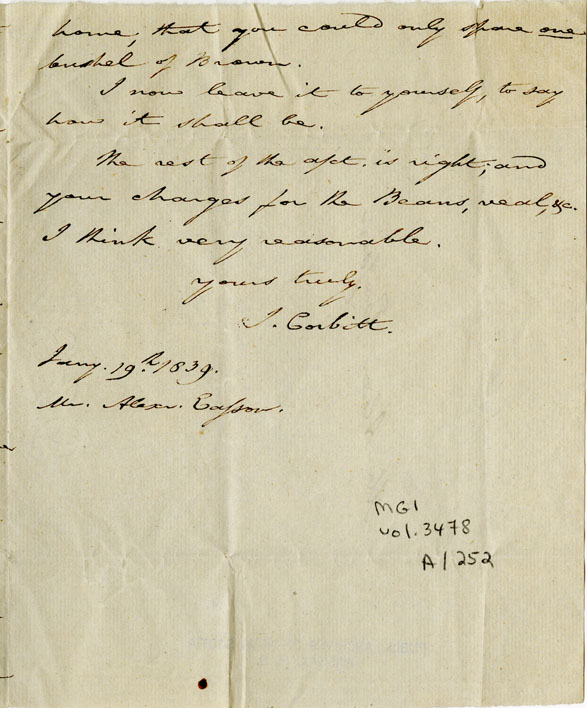 home, that you could only spare one
bushel of Brown.
I now leave it to yourself, to say
how it shall be.
The rest of the acct. is right; and
your charges for the Beans, veal, &c.
I think very reasonable.
yours truly.
J. Corbitt.
Jany. 19th. 1839.
Mr. Alexr. Easson.
MG1
vol. 3478
A/252